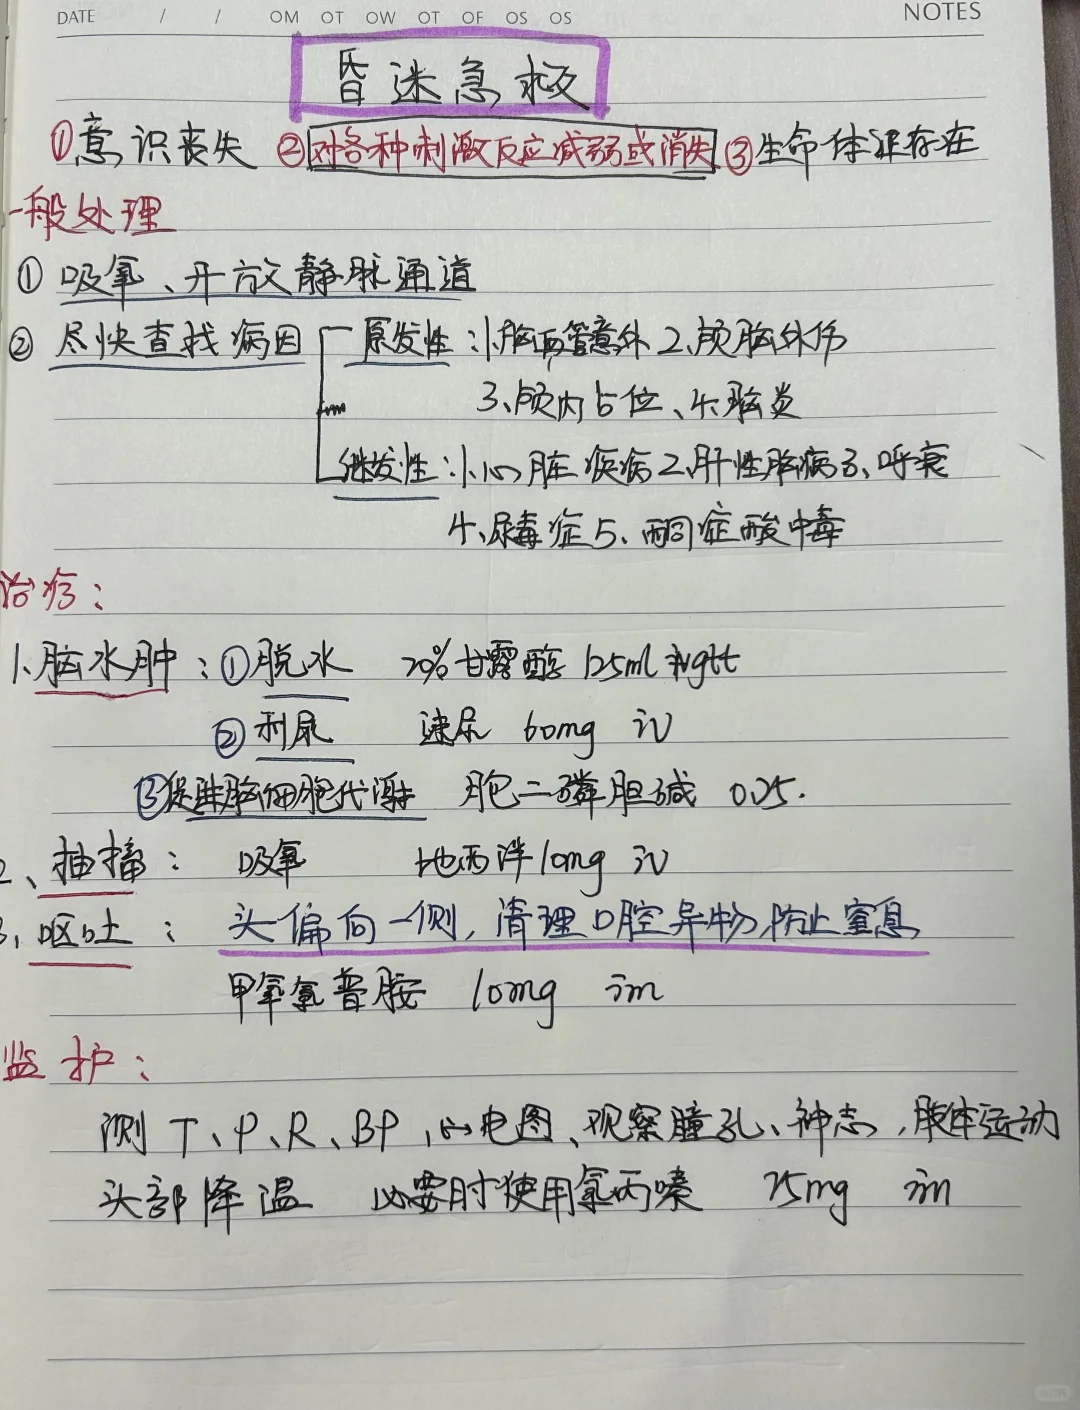 DATE / / OM OT OW OT OF OS OS NOTES
昏迷急救
①意识丧失 ②对各种刺激反应减弱或消失 ③生命体征存在
一般处理
① 吸氧、开放静脉通道
② 尽快查找病因 原发性：1、脑血管意外 2、颅脑外伤
3、颅内占位、4、脑炎
继发性：1、心脏疾病 2、肝性脑病 3、呼衰
4、尿毒症 5、酮症酸中毒
治疗：
1、脑水肿：①脱水 20%甘露醇 125ml ivgtt
②利尿 速尿 60mg iv
③促进脑细胞代谢 胞二磷胆碱 0.25.
2、抽搐： 吸氧 地西泮10mg iv
3、呕吐： 头偏向一侧，清理口腔异物，防止窒息
甲氧氯普胺 10mg im
监护：
测 T、P、R、BP、心电图、观察瞳孔、神志，肢体运动
头部降温 必要时使用氯丙嗪 25mg im